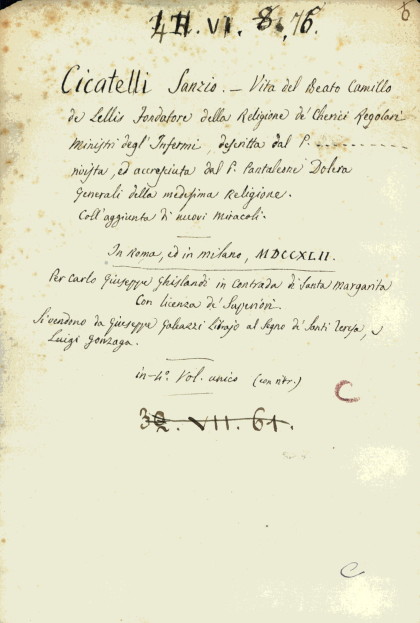 6
VI. 8. 76.
Cicatelli Sanzio. — Vita del Beato Camillo
de Lellis Fondatore della Religione de' Cherici Regolari
Ministri degl' Infermi, descritta dal P. - - - - - - - - - -
rivista, ed accresciuta dal P. Pantaleone Dolera
Generali della medesima Religione.
Coll' aggiunta di nuovi Miracoli.
In Roma, ed in Milano, MDCCXLII.
Per Carlo Giuseppe Ghislandi in contrada di Santa Margarita
Con licenza de' Superiori.
Si vendono da Giuseppe Galeazzi Librajo al Segno di Santi Teresa, e
Luigi Gonzaga.
in-4.° Vol. unico (con ritr.)
C
32. VII. 61.
C